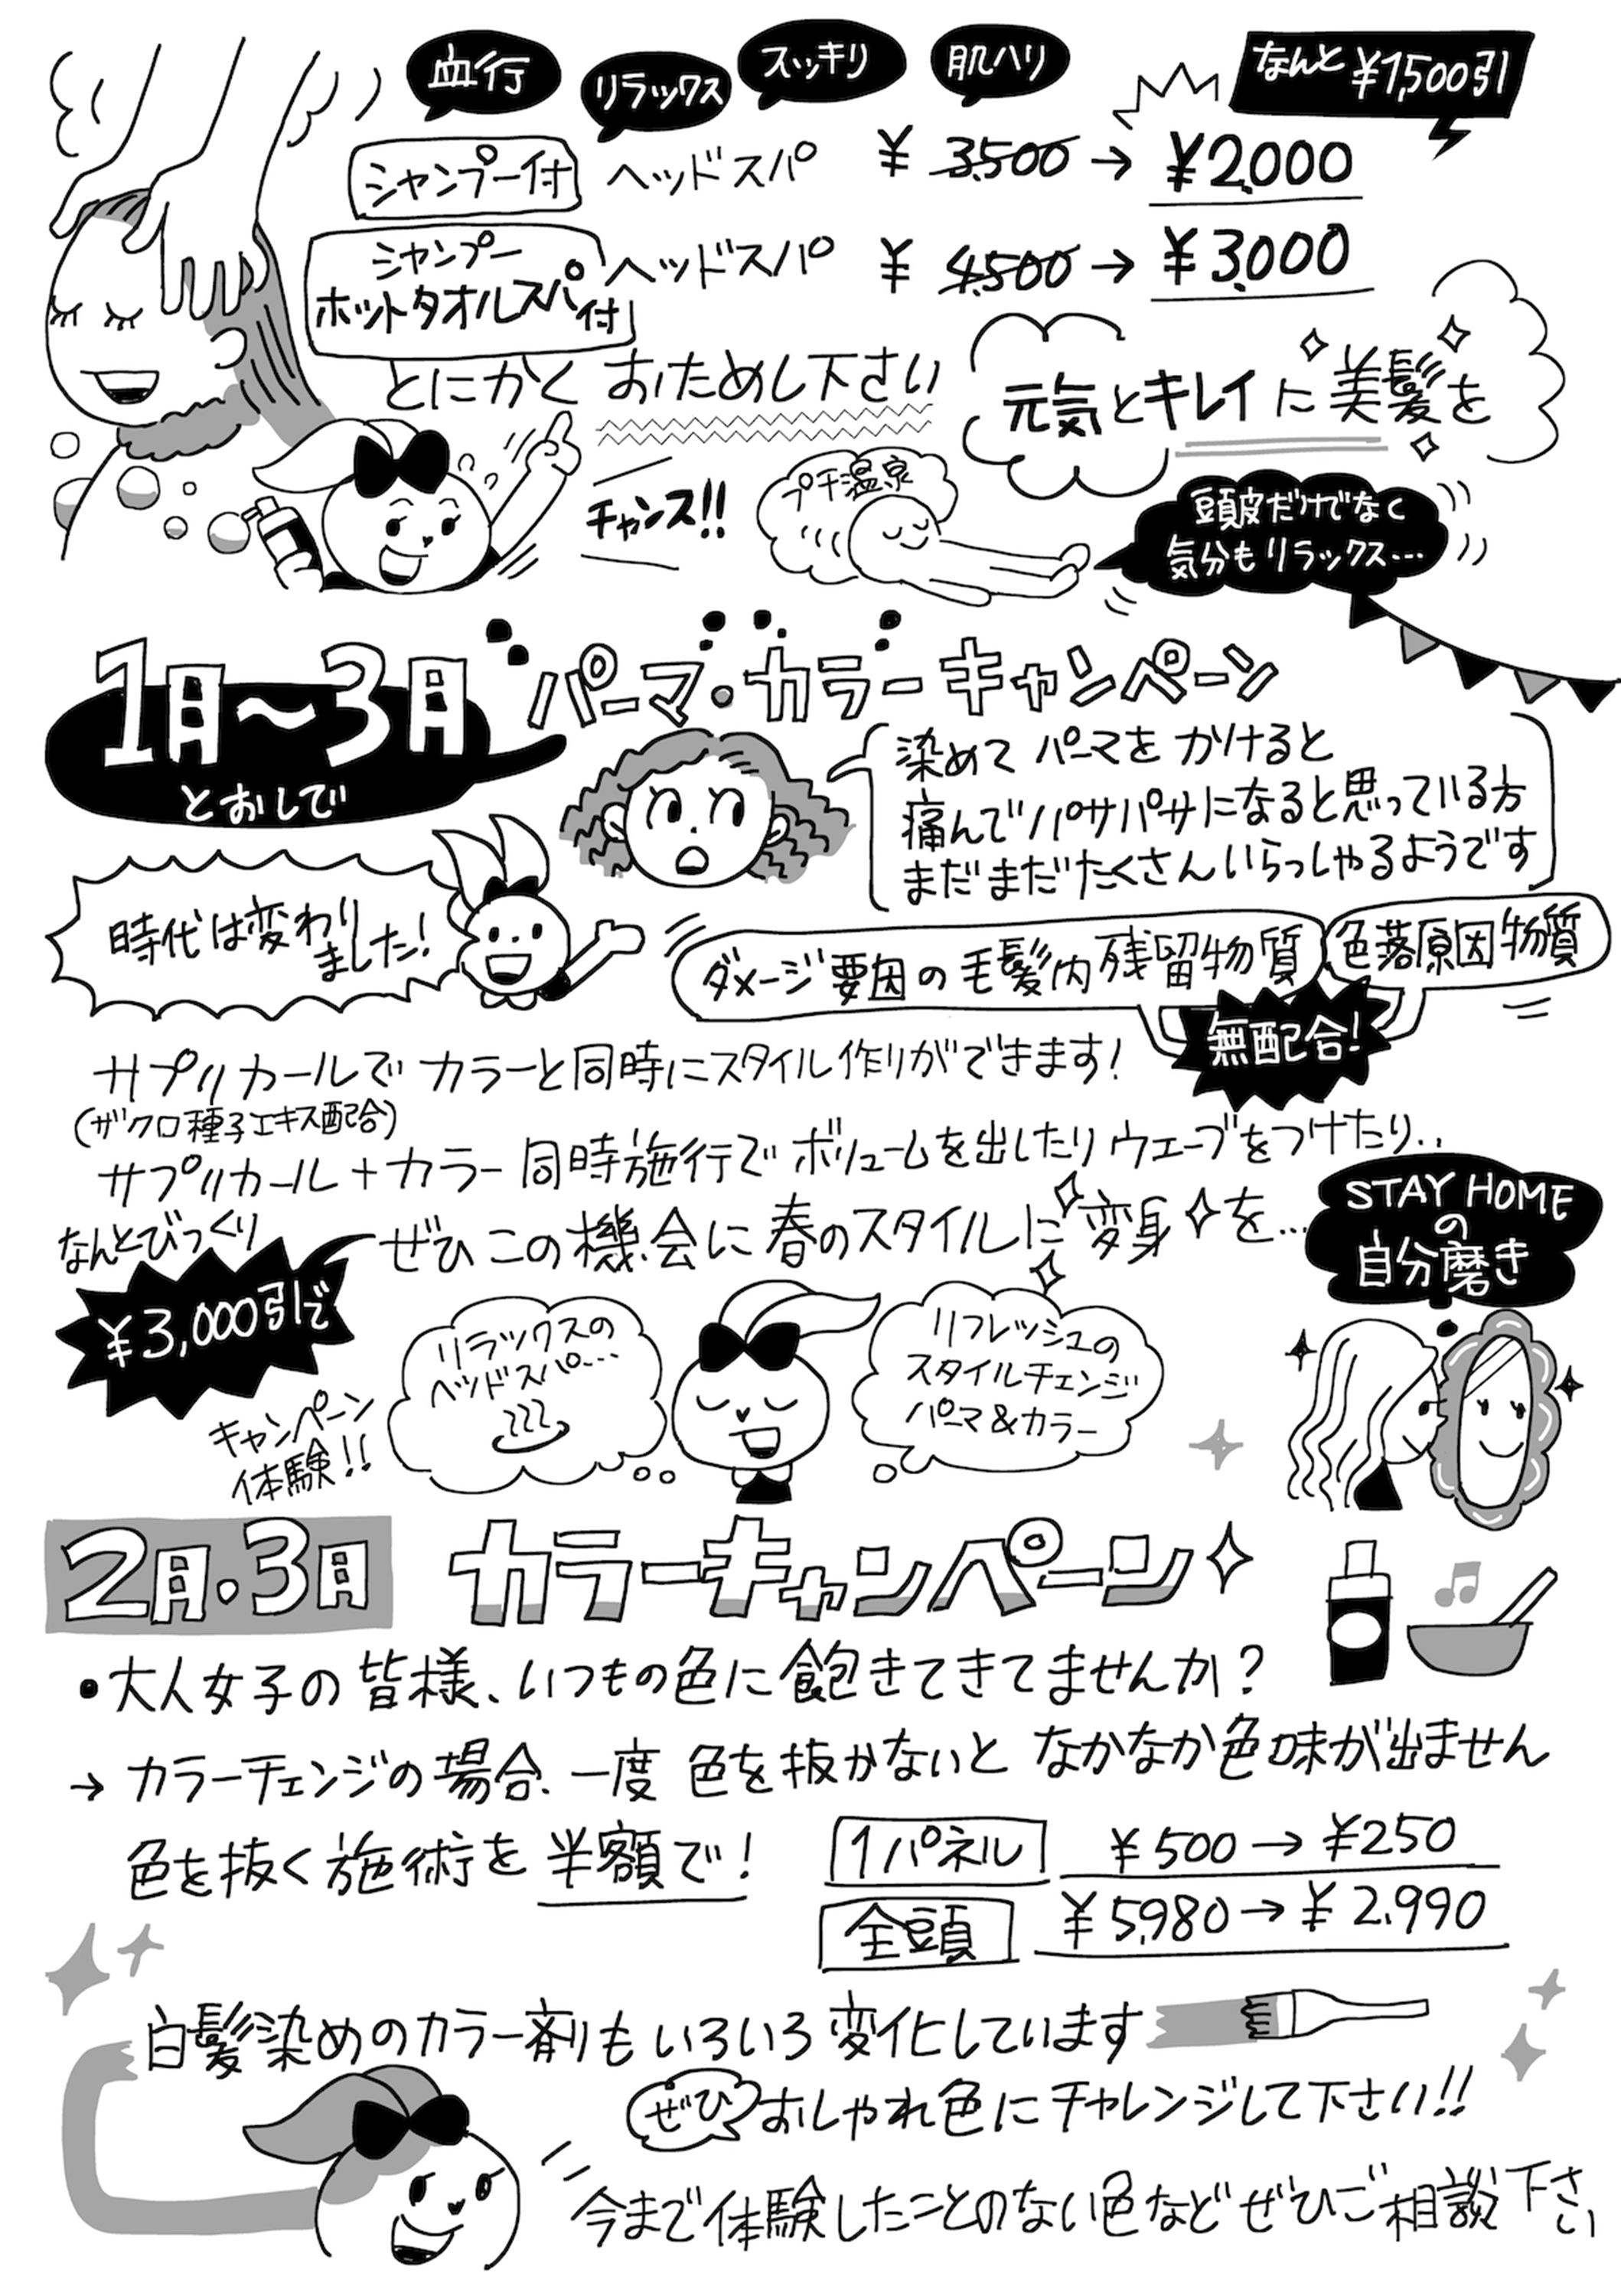 血行
リラックス
スッキリ
肌ハリ
なんと¥1,500引
シャンプー付 ヘッドスパ ¥3,500→¥2,000
シャンプー
ホットタオルスパ付 ヘッドスパ ¥4,500→¥3,000
とにかく おためし下さい
元気とキレイに美髪を
チャンス!!
プチ温泉
頭皮だけでなく
気分もリラックス…
1月〜3月
とおしで
パーマ・カラーキャンペーン
染めて パーマを かけると
痛んでパサパサになると思っている方
まだまだたくさんいらっしゃるようです
時代は変わり
ました!
ダメージ要因の毛髪内残留物質
色落原因物質
無配合!
サプリカールで カラーと同時にスタイル作りができます!
(ザクロ種子エキス配合)
サプリカール+カラー 同時施行で ボリュームを出したり ウェーブをつけたり..
なんとびっくり
ぜひ この機会に 春のスタイルに 変身 を…
STAY HOME
の
自分磨き
¥3,000引で
キャンペーン
体験!!
リラックスの
ヘッドスパ…
リフレッシュの
スタイルチェンジ
パーマ&カラー
2月・3月
カラーキャンペーン
•大人女子の皆様、いつもの色に飽きてきてませんか?
→カラーチェンジの場合、一度 色を抜かないと なかなか色味が出ません
色を抜く施術を 半額で!
1パネル ¥500→¥250
全頭 ¥5,980→¥2,990
白髪染めのカラー剤もいろいろ変化しています
ぜひ おしゃれ色にチャレンジして下さい!!
今まで体験したことのない色など ぜひご相談下さい